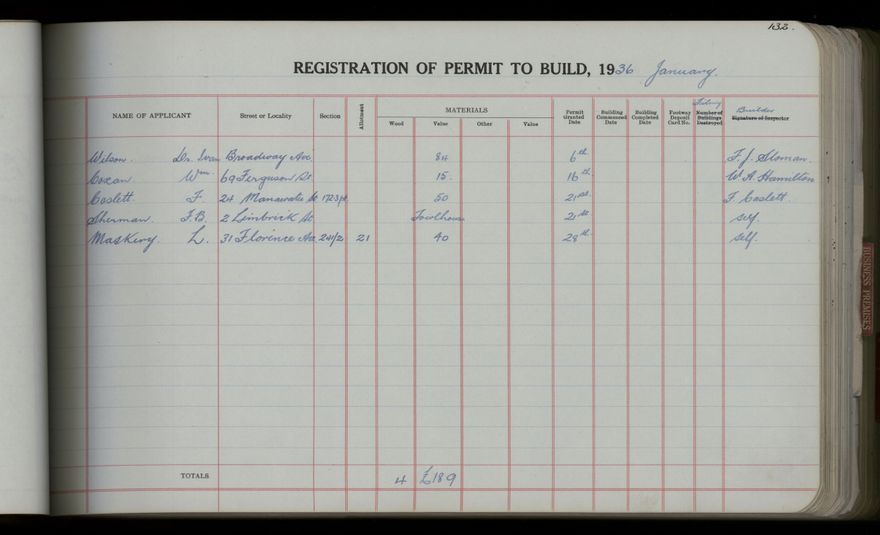 132.
REGISTRATION OF PERMIT TO BUILD, 1936 January.
NAME OF APPLICANT Street or Locality Section Allotment MATERIALS Wood Value Other Value Permit Granted Date Building Commenced Date Building Completed Date Footway Deposit Card No. Number of Buildings Destroyed Builder Signature of Inspector
Wilson. Dr. Ivan Broadway Ave 84 6th F. J. Sloman.
Coxan. Wm. 69 Ferguson St. 15. 16th W. A. Hamilton
Coslett. F. 24 Manawatu St. 50 21st F. Coslett.
Sherman. F.B. 2 Limbrick St. Fowlhouse 21st self.
Maskery. L. 31 Florence Ave 241/2 21 40 28th self.
TOTALS 4 £189
BUSINESS PREMISES